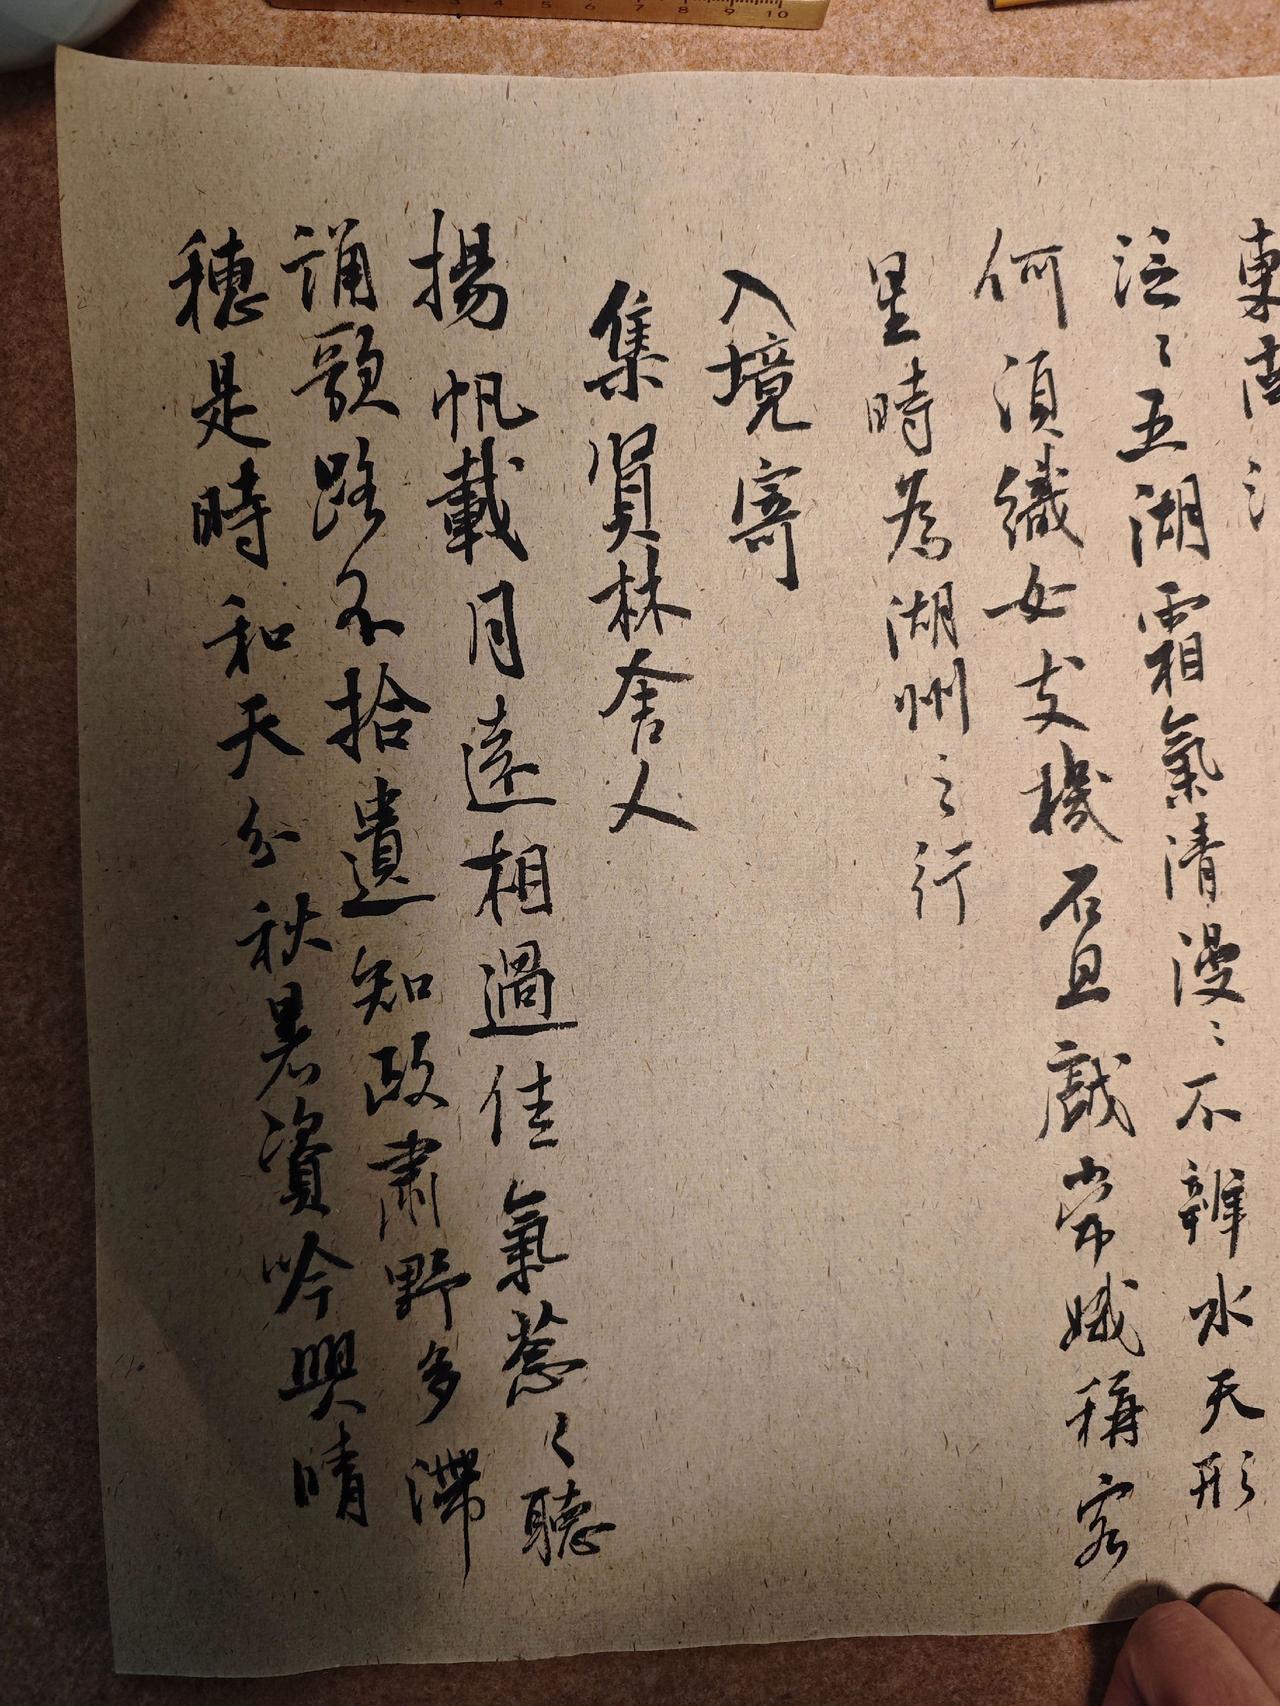 東南
泛〻五湖霜氣清漫〻不辨水天形
何須織女支機石且戲常娥稱客
星時為湖州之行
入境寄
集賢林舍人
揚帆載月遠相過佳氣蔥〻聽
誦歌路不拾遺知政肅野多滯
穗是時和天分秋暑資吟興晴